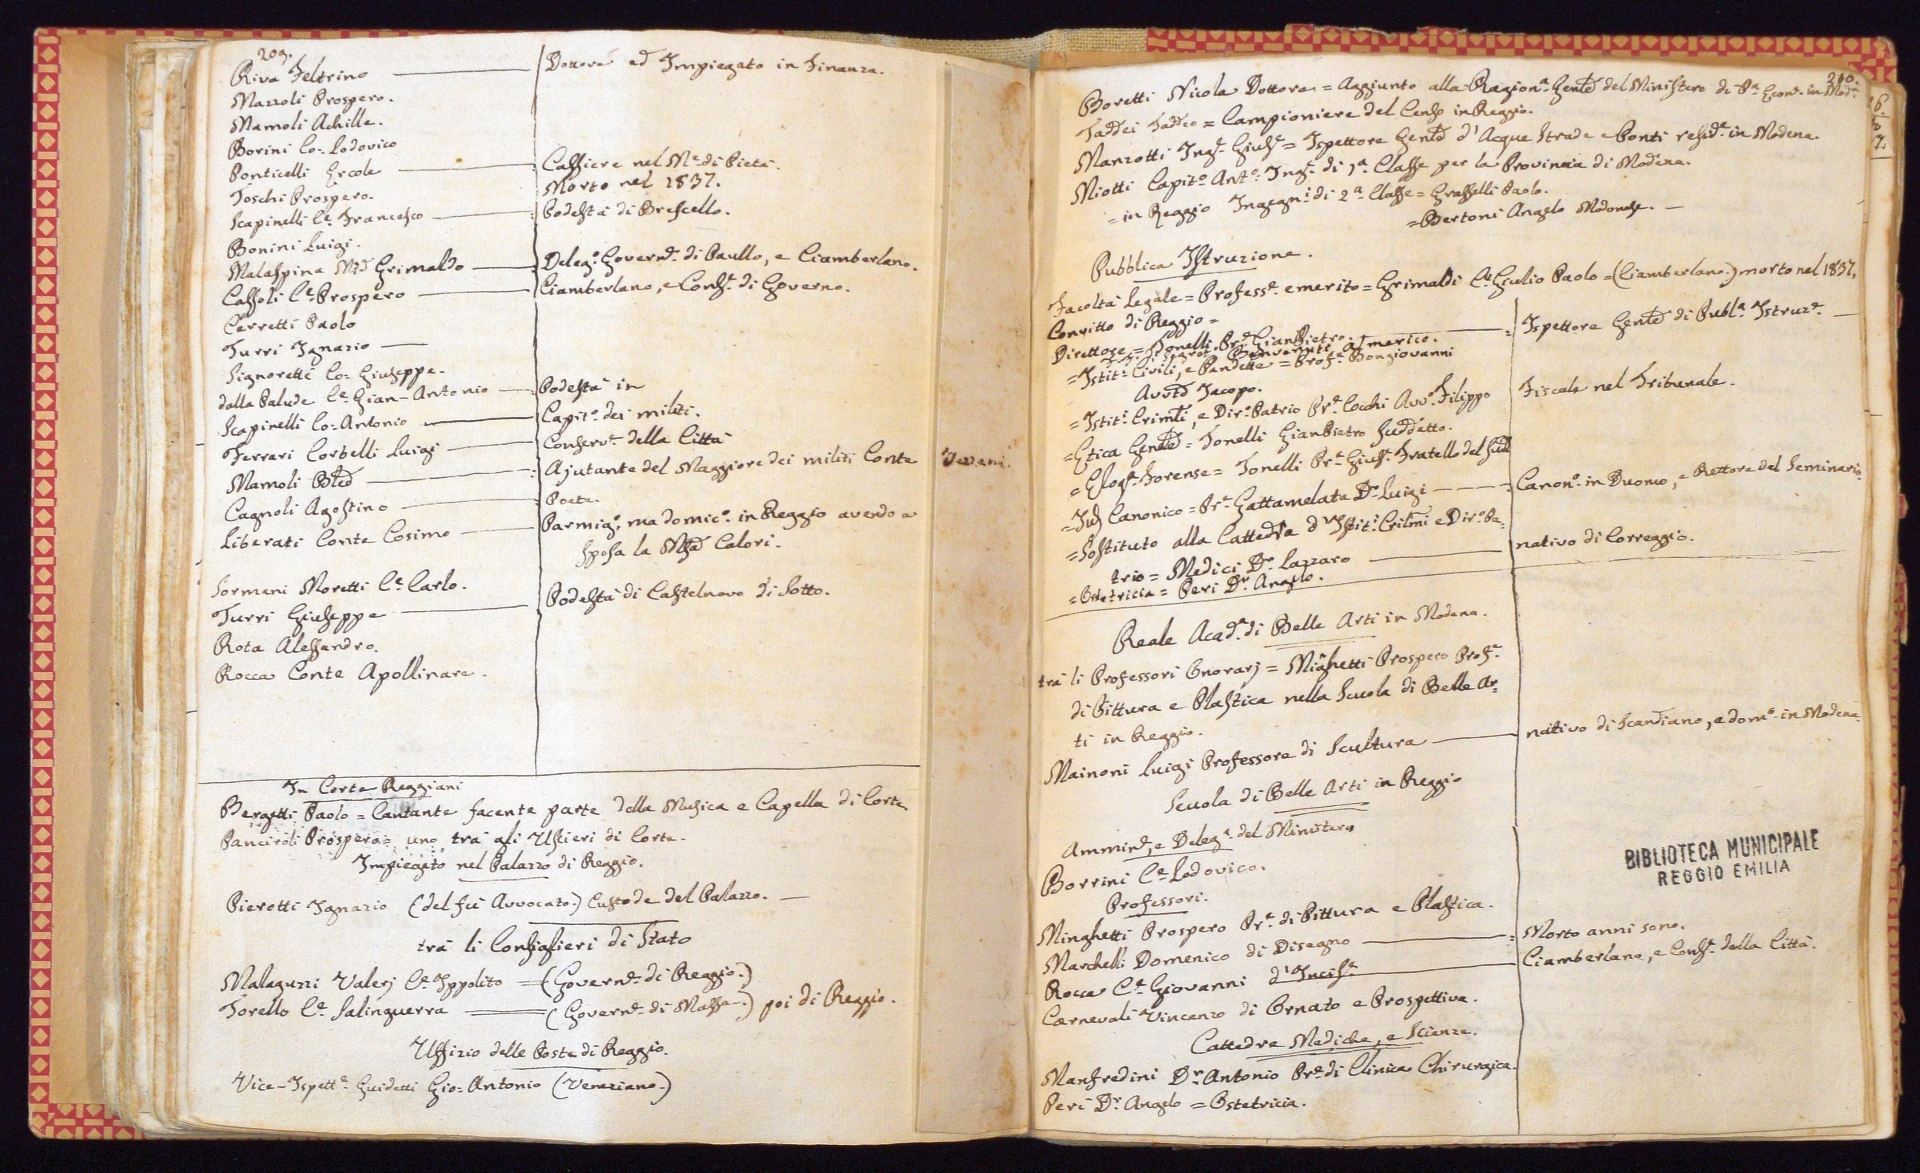 209.
Riva Feltrino — Dottore ed Impiegato in Finanza.
Mazzoli Prospero.
Mamoli Achille.
Borini Co: Lodovico
Ponticelli Ercole — Cassiere nel Me: di Pietà.
Toschi Prospero. Morto nel 1837.
Scapinelli Ce: Francesco — Podestà di Brescello.
Bonini Luigi.
Malaspina Grimaldo — Delego: Governo: di Paullo, e Ciamberlano.
Cassoli Ce: Prospero — Ciamberlano, e Conse: di Governo.
Cerretti Paolo
Turri Ignazio —
Signoretti Co: Giuseppe.
dalla Palude Ce: Gian-Antonio — Podestà in
Scapinelli Co: Antonio — Capito: dei militi.
Ferrari Corbelli Luigi — Conserve: della Città
Mamoli — Ajutante del Maggiore dei militi Conte
Cagnoli Agostino — Poeta.
Liberati Conte Cosimo — Parmigo:, ma domico: in Reggio avendo a
Sposa la Calori.
Sormani Moretti Ce: Carlo.
Turri Giuseppe — Podestà di Castelnovo di Sotto.
Rota Alessandro.
Rocca Conte Apollinare.
In Corte Reggiani
Bergetti Paolo = Cantante facente parte della Musica e Capella di Corte
Panciroli Prospero = uno trà gli Uscieri di Corte.
Impiegato nel Palazzo di Reggio.
Pierotti Ignazio (del fù Avvocato:) Custode del Palazzo. —
trà li Consiglieri di Stato
Malaguzzi Valerj Ce: Ippolito = (Govere: di Reggio:)
Torello Ce: Salinguerra = (Govere: di Massa:) poi di Reggio.
Uffizio delle Poste di Reggio.
Vice-Ispette: Guidetti Gio: Antonio (Veneziano:)
210.
Boretti Nicola Dottore = Aggiunto alla Ragiona: del Ministero di Pa: Econ: in Moda:
Taddei Taddeo = Campioniere del Censo in Reggio.
Manzotti Inge: Giuse: = Ispettore d'Acque Strade e Ponti reside: in Modena.
Miotti Capito: Anto: Inge: di 1a Classe per la Provincia di Modena.
= in Reggio Ingegni: di 2a Classe = Grasselli Paolo.
= Bertoni Angelo Modonese. —
Pubblica Istruzione.
Facoltà Legale = Professe: emerito = Grimaldi Ce: Giulio Paolo = (Ciamberlano:) morto nel 1837.
Convitto di Reggio =
Direttore = Tonelli Pre: Gian Pietro — Ispettore di Publa: Istruze: —
Benvenuti Americo.
= Istiti: Civili, e Pandette = Profe: Bongiovanni
Jacopo.
= Istiti: e Diro: Patrio Pre: Cocchi Avvo: Filippo — Fiscale nel Tribunale.
= Etica = Tonelli Gian Pietro Suddetto.
= Eloqa: Forense = Tonelli Pre: Giuse: Fratello del
= Jus Canonico = Pre: Gattamelata Dr: Luigi — Canono: in Duomo, e Rettore del Seminario
= Sostituto alla Cattedra d'Istiti: e Diro: Pa:
trio = Medici Dr: Lazzaro — nativo di Correggio.
= Ostetricia = Peri Dr: Angelo.
Reale Acada: di Belle Arti in Modena.
trà li Professori Onorarj = Minghetti Prospero Profe:
di Pittura e Plastica nella Scuola di Belle Ar-
ti in Reggio.
Mainoni Luigi Professore di Scultura — nativo di Scandiano, e domo: in Modena
Scuola di Belle Arti in Reggio
Ammine:, e Delega: del Ministero
Borrini Ce: Lodovico.
Professori.
Minghetti Prospero Pre: di Pittura e Plastica.
Marchelli Domenico di Disegno — Morto anni sono.
Rocca Ce: Giovanni d'Incise: — Ciamberlano, e Conse: della Città.
Carnevali Vincenzo di Ornato e Prospettiva.
Cattedre Mediche, e Scienze.
Manfredini Dr: Antonio Pre: di Clinica Chirurgica.
Peri Dr: Angelo = Ostetricia.
BIBLIOTECA MUNICIPALE
REGGIO EMILIA